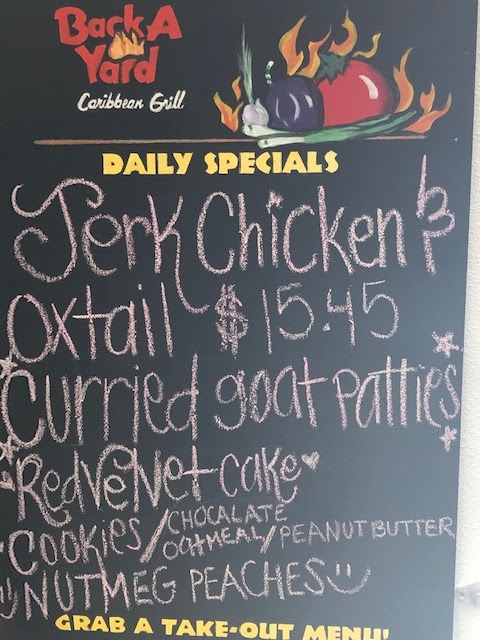 Back A
Yard
Caribbean Grill
DAILY SPECIALS
Jerk Chicken &
Oxtail $15.45
Curried goat Patties
Red Velvet cake
COOKIES / CHOCALATE
OATMEAL / PEANUT BUTTER
NUTMEG PEACHES
GRAB A TAKE-OUT MENU!